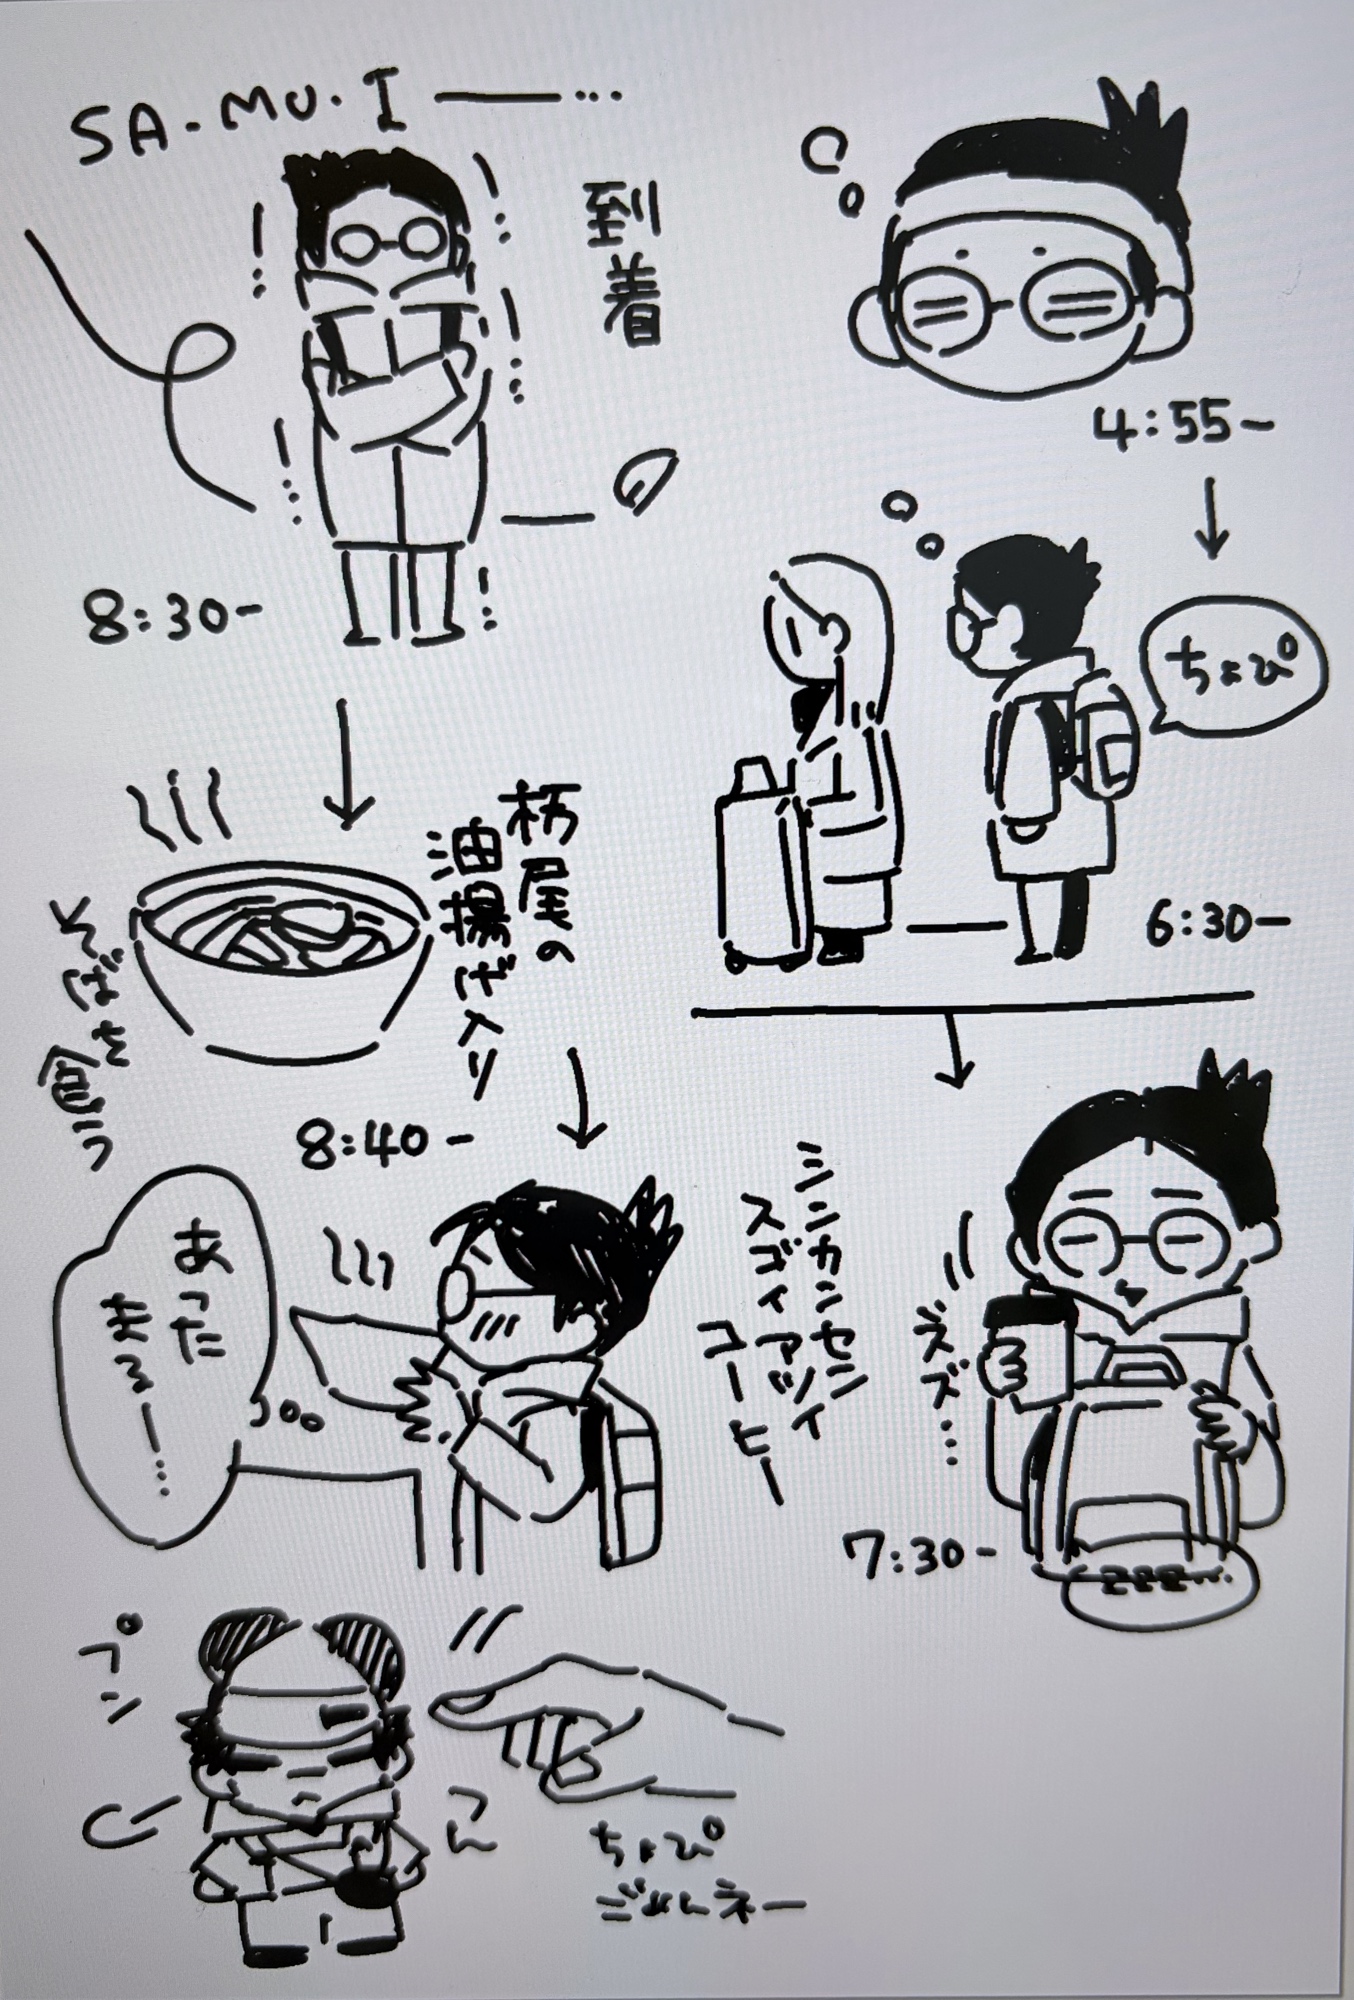 4:55-
ちょぴ
6:30-
シンカンセン
スゴイアツイ
コーヒー
ズズ…
7:30-
zzz…
SA-MU・I――…
到着
8:30-
栃尾の
油揚げ入り
そばを
食う
8:40-
あった
まるー…
プン
つん
ちょぴ
ごめんネー